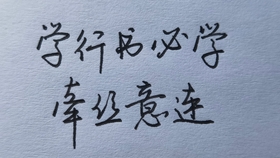 学行书必学
牵丝意连